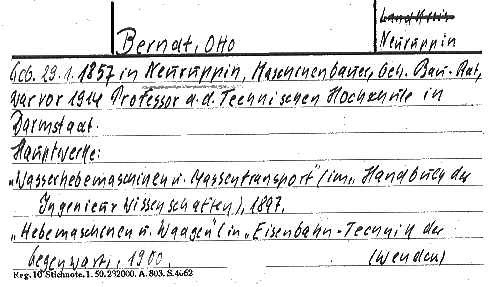 Landkreis
Berndt, Otto
Neuruppin
Geb. 29.1.1857 in Neuruppin, Maschinenbauer, Geh. Bau-Rat,
war vor 1914 Professor a.d. Technischen Hochschule in
Darmstadt.
Hauptwerke:
„Wasserhebemaschinen u. Massentransport" (im „Handbuch der
Ingenieurwissenschaften), 1897.
„Hebemaschinen u. Waagen" (in „Eisenbahn-Technik der
Gegenwart"), 1900. (Wenden)
Reg. 10 Stichnote. 1. 50. 232000. A. 803. S. 4662